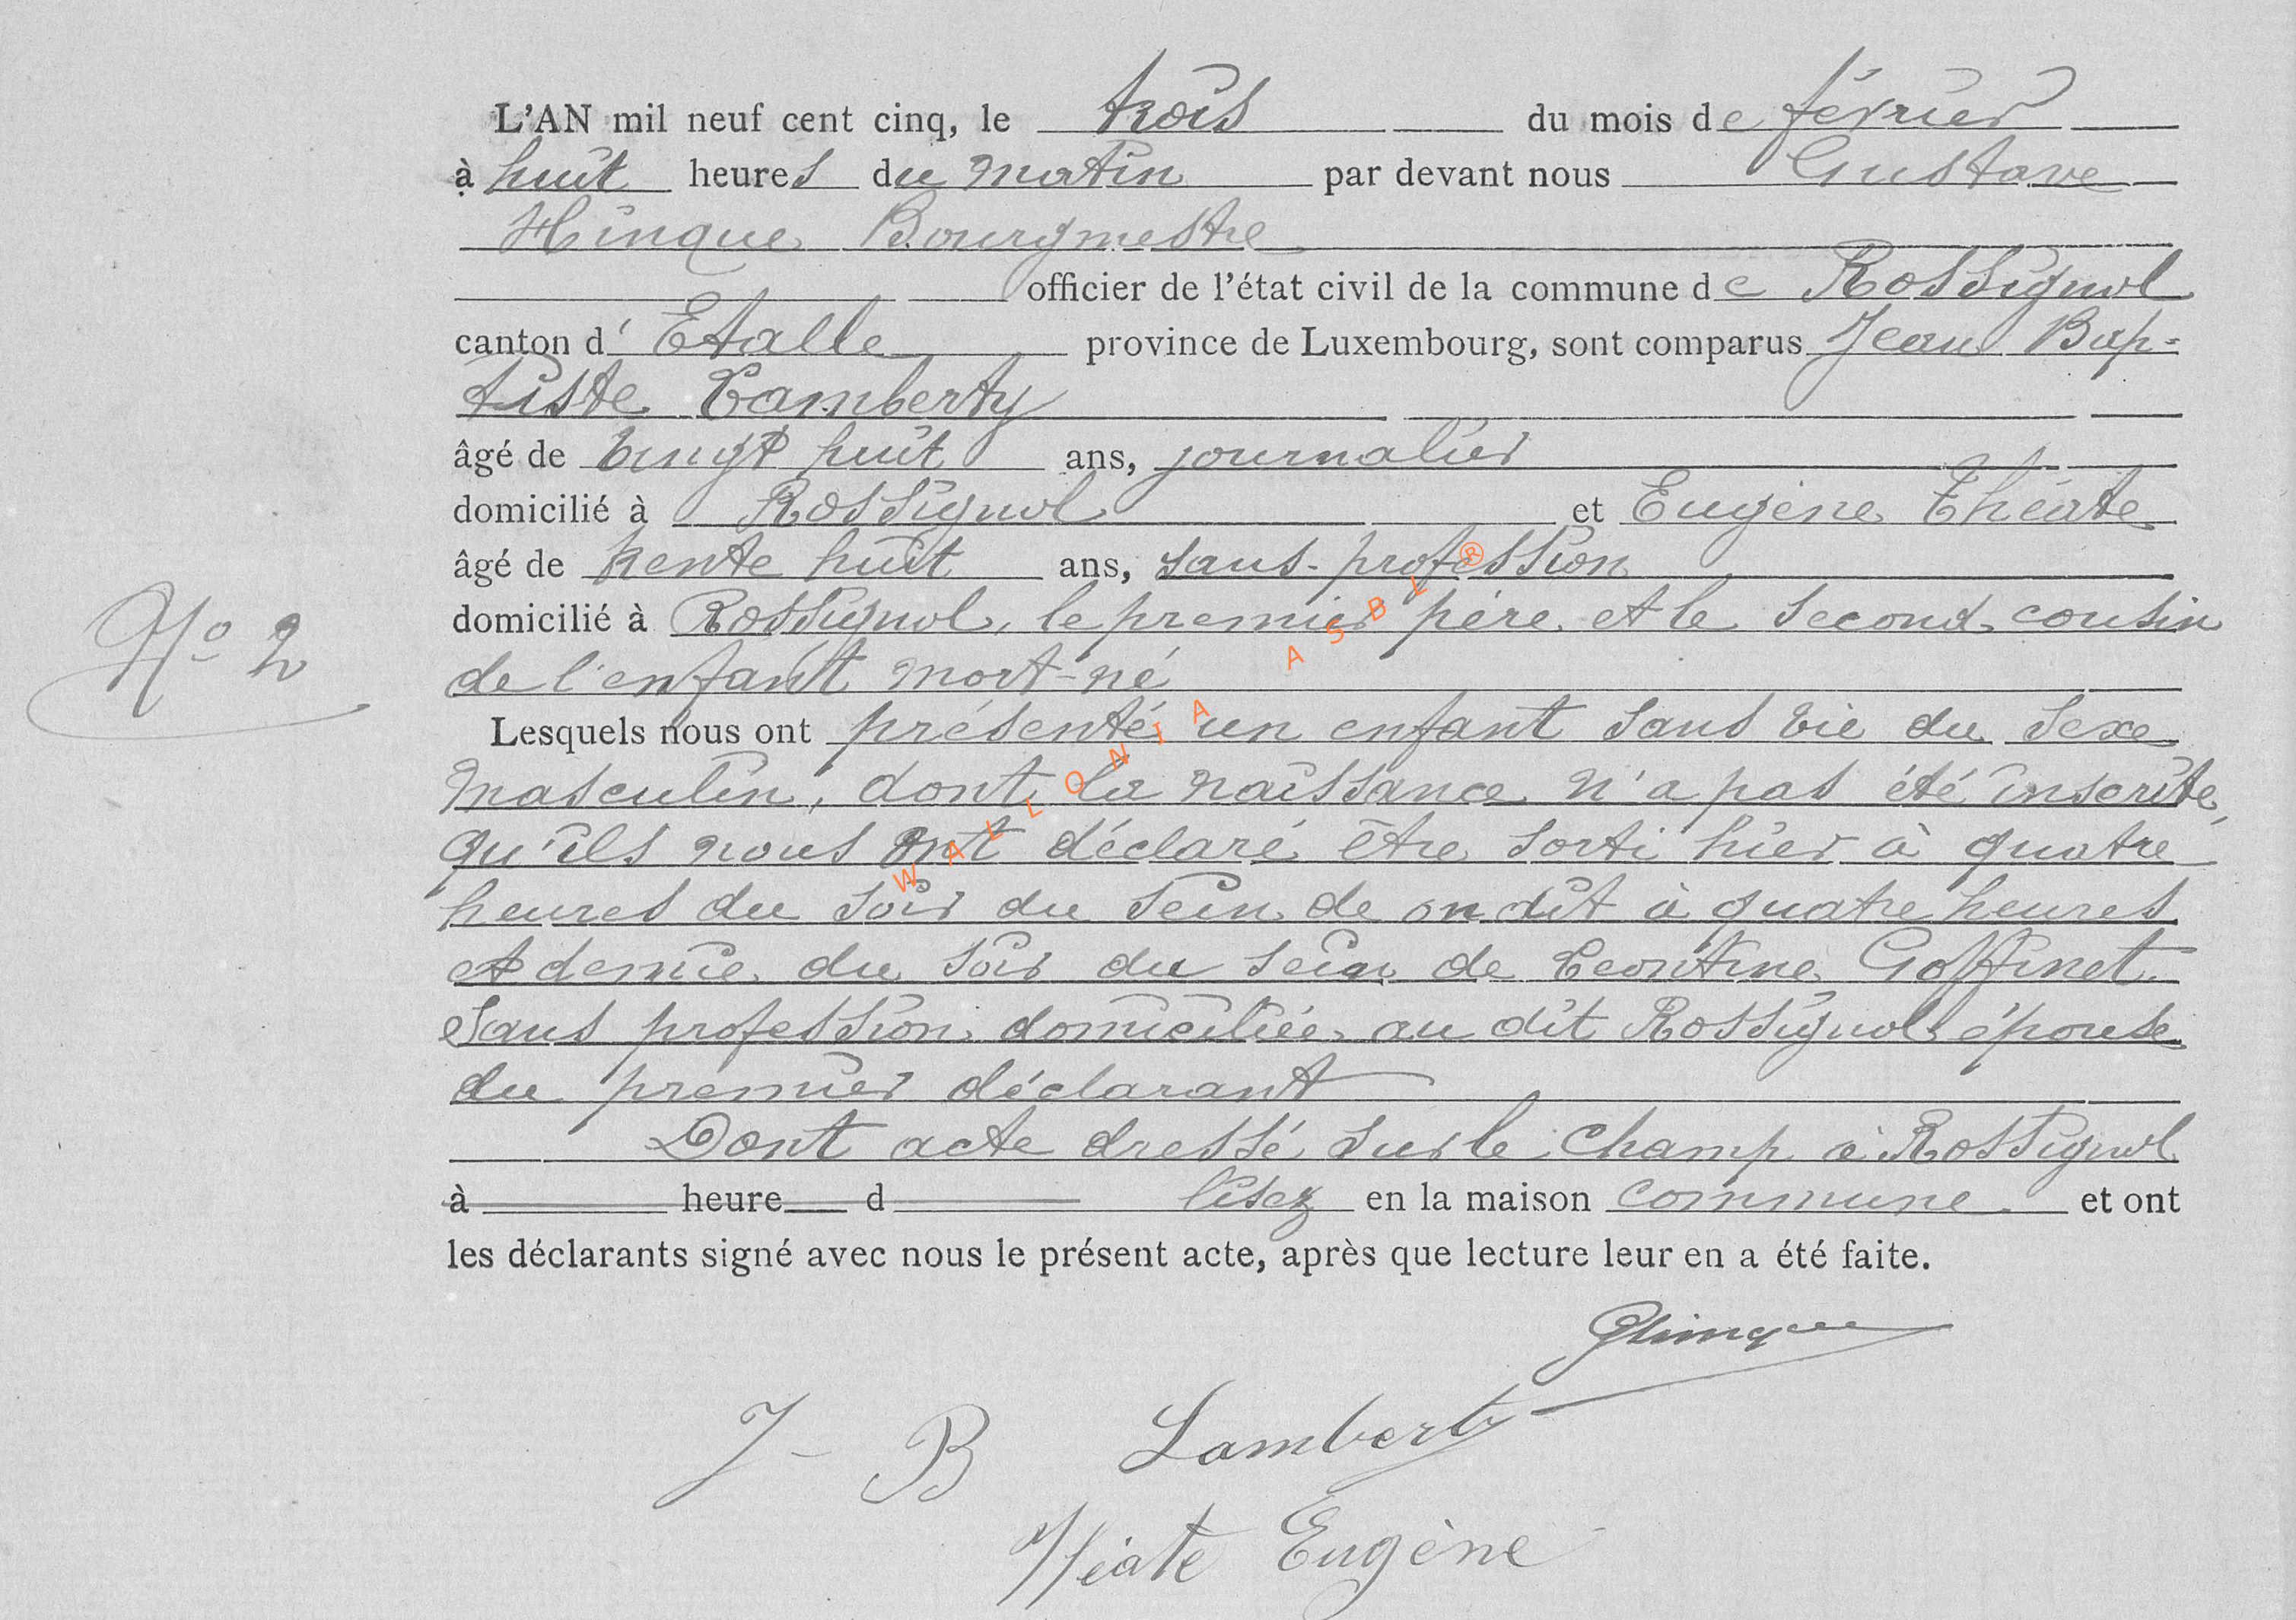 L'AN mil neuf cent cinq, le trois du mois de février
à huit heures du matin par devant nous Gustave
Hinque Bourgmestre
officier de l'état civil de la commune de Rossignol
canton d'Etalle province de Luxembourg, sont comparus Jean Bap-
tiste Lamberty
âgé de vingt huit ans, journalier
domicilié à Rossignol et Eugène Théâte
âgé de trente huit ans, sans-profession
domicilié à Rossignol, le premier père et le second cousin
de l'enfant mort-né
N° 2
Lesquels nous ont présenté un enfant sans vie du sexe
masculin, dont la naissance n'a pas été inscrite,
qu'ils nous ont déclaré être sorti hier à quatre
heures du soir du sein de on dit à quatre heures
et demie du soir du sein de Leontine Goffinet
sans profession domiciliée au dit Rossignol épouse
du premier déclarant
Dont acte dressé sur le champ à Rossignol
à heure d lisez en la maison commune et ont
les déclarants signé avec nous le présent acte, après que lecture leur en a été faite.
GHinque
J-B Lamberty
Théate Eugène
WALLONIA ASBL ®